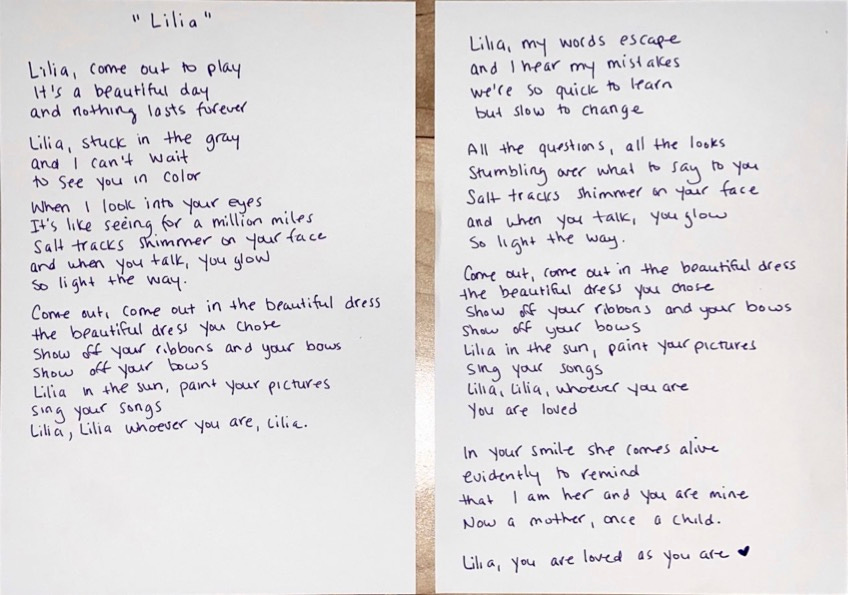 "Lilia"
Lilia, come out to play
It's a beautiful day
and nothing lasts forever
Lilia, stuck in the gray
and I can't wait
to see you in color
When I look into your eyes
It's like seeing for a million miles
Salt tracks shimmer on your face
and when you talk, you glow
So light the way.
Come out, come out in the beautiful dress
the beautiful dress you chose
Show off your ribbons and your bows
Show off your bows
Lilia in the sun, paint your pictures
Sing your songs
Lilia, Lilia whoever you are, Lilia.
Lilia, my words escape
and I hear my mistakes
we're so quick to learn
but slow to change
All the questions, all the looks
Stumbling over what to say to you
Salt tracks shimmer on your face
and when you talk, you glow
So light the way.
Come out, come out in the beautiful dress
the beautiful dress you chose
Show off your ribbons and your bows
Show off your bows
Lilia in the sun, paint your pictures
Sing your songs
Lilia, Lilia, whoever you are
You are loved
In your smile she comes alive
evidently to remind
that I am her and you are mine
Now a mother, once a child.
Lilia, you are loved as you are ♥